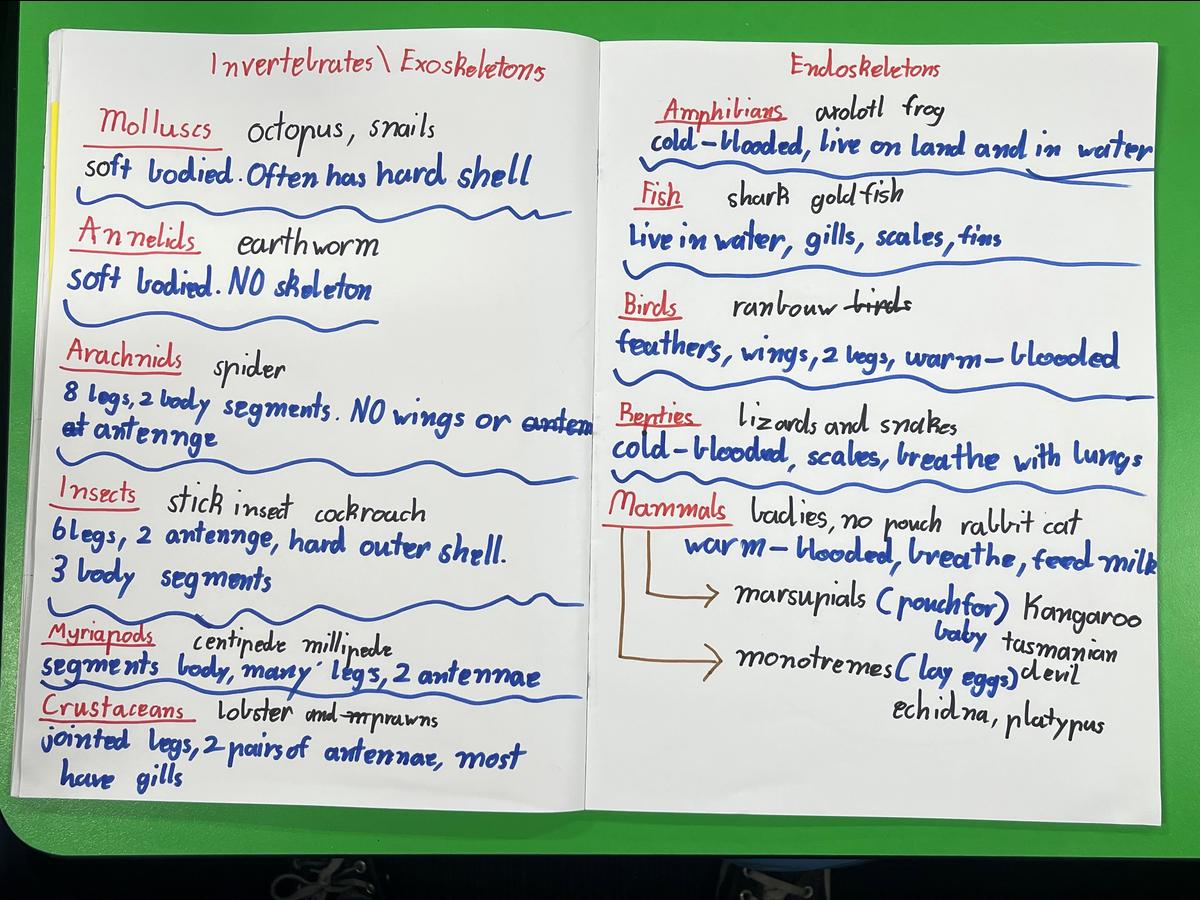 Invertebrates \ Exoskeletons
Molluscs octopus, snails
soft bodied. Often has hard shell
Annelids earthworm
soft bodied. NO skeleton
Arachnids spider
8 legs, 2 body segments. NO wings or anten
at antennge
Insects stick insect cockroach
6 legs, 2 antennge, hard outer shell.
3 body segments
Myriapods centipede millipede
segments body, many legs, 2 antennae
Crustaceans lobster and prawns
jointed legs, 2 pairs of antennae, most
have gills
Endoskeletons
Amphibians axolotl frog
cold-blooded, live on land and in water
Fish shark goldfish
Live in water, gills, scales, fins
Birds ranbouw birds
feathers, wings, 2 legs, warm-blooded
Repties lizards and snakes
cold-blooded, scales, breathe with lungs
Mammals badies, no pouch rabbit cat
warm-blooded, breathe, feed milk
marsupials (pouch for) Kangaroo
baby tasmanian
monotremes (lay eggs) devil
echidna, platypus